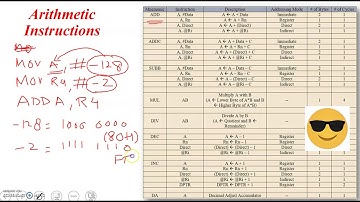 Arithmetic
Instructions
MOV A, #-128
MOV R4, #-2
ADD A, R4
-128 = 1000 0000
(80H)
-2 = 1111 1110
Mnemonic Instruction Description Addressing Mode # of Bytes # of Cycles
ADD A, #Data A ← A + Data Immediate 2 1
A, Rn A ← A + Rn Register 1 1
A, Direct A ← A + (Direct) Direct 2 1
A, @Ri A ← A + @Ri Indirect 1 1
ADDC A, #Data A ← A + Data + C Immediate 2 1
A, Rn A ← A + Rn + C Register 1 1
A, Direct A ← A + (Direct) + C Direct 2 1
A, @Ri A ← A + @Ri + C Indirect 1 1
SUBB A, #Data A ← A – Data – C Immediate 2 1
A, Rn A ← A – Rn – C Register 1 1
A, Direct A ← A – (Direct) – C Direct 2 1
A, @Ri A ← A – @Ri – C Indirect 1 1
MUL AB Multiply A with B
(A ← Lower Byte of A*B and B
← Higher Byte of A*B) -- 1 4
DIV AB Divide A by B
(A ← Quotient and B ←
Remainder) -- 1 4
DEC A A ← A – 1 Register 1 1
Rn Rn ← Rn – 1 Register 1 1
Direct (Direct) ← (Direct) – 1 Direct 2 1
@Ri @Ri ← @Ri – 1 Indirect 1 1
INC A A ← A + 1 Register 1 1
Rn Rn ← Rn + 1 Register 1 1
Direct (Direct) ← (Direct) + 1 Direct 2 1
@Ri @Ri ← @Ri + 1 Indirect 1 1
DPTR DPTR ← DPTR + 1 Register 1 2
DA A Decimal Adjust Accumulator -- 1 1